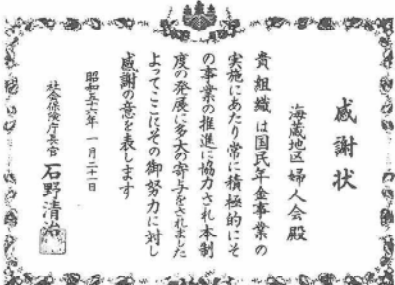 感謝状
海蔵地区婦人会殿
貴組織は国民年金事業の
実施にあたり常に積極的にそ
の事業の推進に協力され本制
度の発展に多大の寄与をされました
よってここにその御努力に対し
感謝の意を表します
昭和五十六年一月二十一日
社会保険庁長官 石野清治